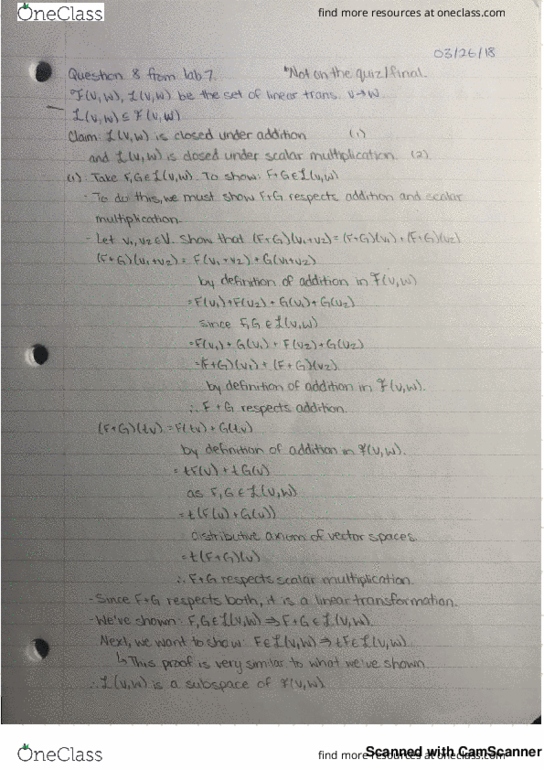 OneClass
find more resources at oneclass.com
03/26/18
Question 8 from lab 7. *Not on the quiz/final.
F(V,W), L(V,W) be the set of linear trans. V→W
L(V,W) ⊆ F(V,W)
Claim: L(V,W) is closed under addition (1)
and L(V,W) is closed under scalar multiplication. (2)
(1): Take F,G∈L(V,W). To show: F+G∈L(V,W)
· To do this, we must show F+G respects addition and scalar
multiplication.
- Let v₁,v₂∈V. Show that (F+G)(v₁+v₂)=(F+G)(v₁)+(F+G)(v₂)
(F+G)(v₁+v₂) = F(v₁+v₂)+G(v₁+v₂)
by definition of addition in F(V,W)
=F(v₁)+F(v₂)+G(v₁)+G(v₂)
since F,G∈L(V,W)
=F(v₁)+G(v₁)+F(v₂)+G(v₂)
=(F+G)(v₁)+(F+G)(v₂)
by definition of addition in F(V,W).
∴ F+G respects addition.
(F+G)(tv)=F(tv)+G(tv)
by definition of addition in F(V,W).
=tF(v)+tG(v)
as F,G∈L(V,W)
=t(F(v)+G(v))
distributive axiom of vector spaces.
=t(F+G)(v)
∴ F+G respects scalar multiplication.
- Since F+G respects both, it is a linear transformation.
- We've shown: F,G∈L(V,W)⇒F+G∈L(V,W).
Next, we want to show: F∈L(V,W)⇒tF∈L(V,W).
↳This proof is very similar to what we've shown.
∴ L(V,W) is a subspace of F(V,W)
OneClass
find more resources at oneclass.com
Scanned with CamScanner